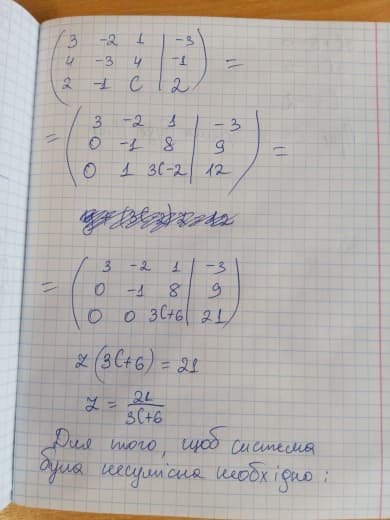 3 -2 1 | -3
4 -3 4 | -1 =
2 -1 C | 2
3 -2 1 | -3
= 0 -1 8 | 9 =
0 1 3C-2 | 12
3 -2 1 | -3
= 0 -1 8 | 9
0 0 3C+6 | 21
z (3C+6) = 21
z = 21/3C+6
Для того, щоб система
була несумісна необхідно: